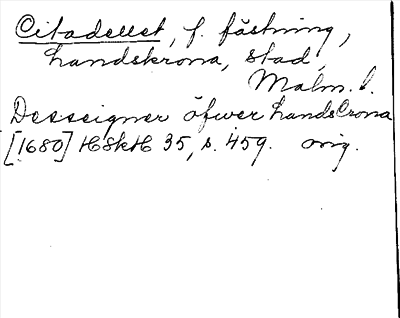 Citadellet, f. fästning,
Landskrona, stad,
Malm. l.
Desseigner öfwer LandsCrona
[1680] HSkH 35, s. 459. orig.